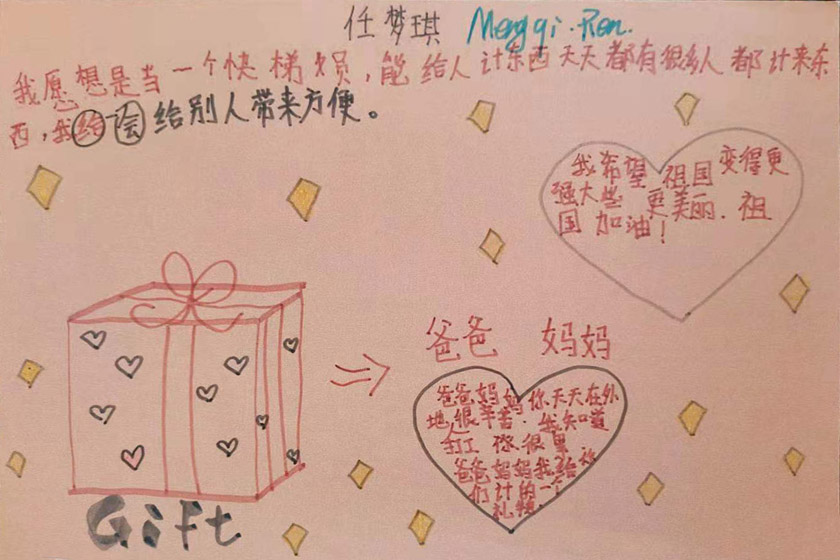 任梦琪 Mengqi·Ren.
我愿想是当一个快梯员,能给人计东西天天都有很多人都计来东
西,我给会给别人带来方便。
我希望祖国变得更
强大些更美丽.祖
国加油!
爸爸 妈妈
爸爸妈妈你天天在外
地很辛苦.我知道
打工你很累
爸爸妈妈我给你
们计的一个
礼物.
Gift